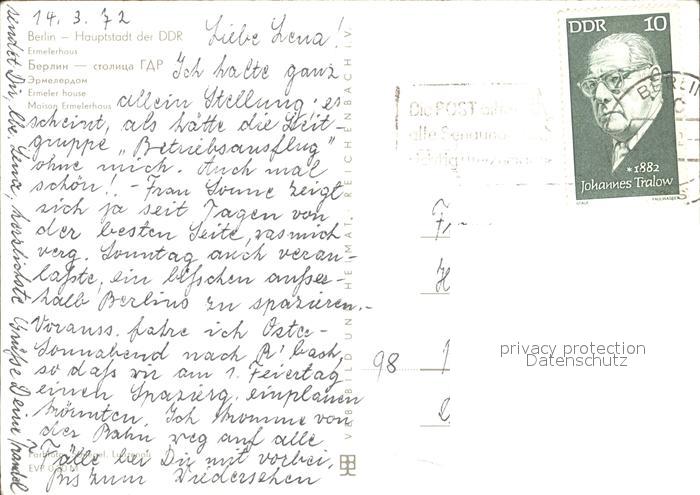 14. 3. 72
Berlin – Hauptstadt der DDR
Ermelerhaus
Берлин — столица ГДР
Эрмелердом
Ermeler house
Maison Ermelerhaus
Liebe Lena!
Ich halte ganz
allein Stellung; es
scheint, als hätte die
gruppe „Betriebsausflug"
ohne mich. Auch mal
schön!. - Frau Sonne zeigt
sich ja seit Tagen von
der besten Seite, was mich
verg. Sonntag auch veran-
laßte, ein bißchen außer-
halb Berlins zu spazieren. -
Vorauss. fahre ich Oster-
Sonnabend nach R' bach,
so daß wir am 1. Feiertag
einen Spazierg. einplanen
könnten. Ich komme von
der Bahn weg auf alle
Fälle bei Dir mit vorbei.
Bis zum Wiedersehen
sendet Dir, lbe. Lena, herzlichste Grüße Deine
EVP
VEB BILD UND HEIMAT REICHENBACH i. V.
DDR 10
*1882
Johannes Tralow
BERLIN
Die POST
alle Sendungen
Fr
H
98
privacy protection
Datenschutz